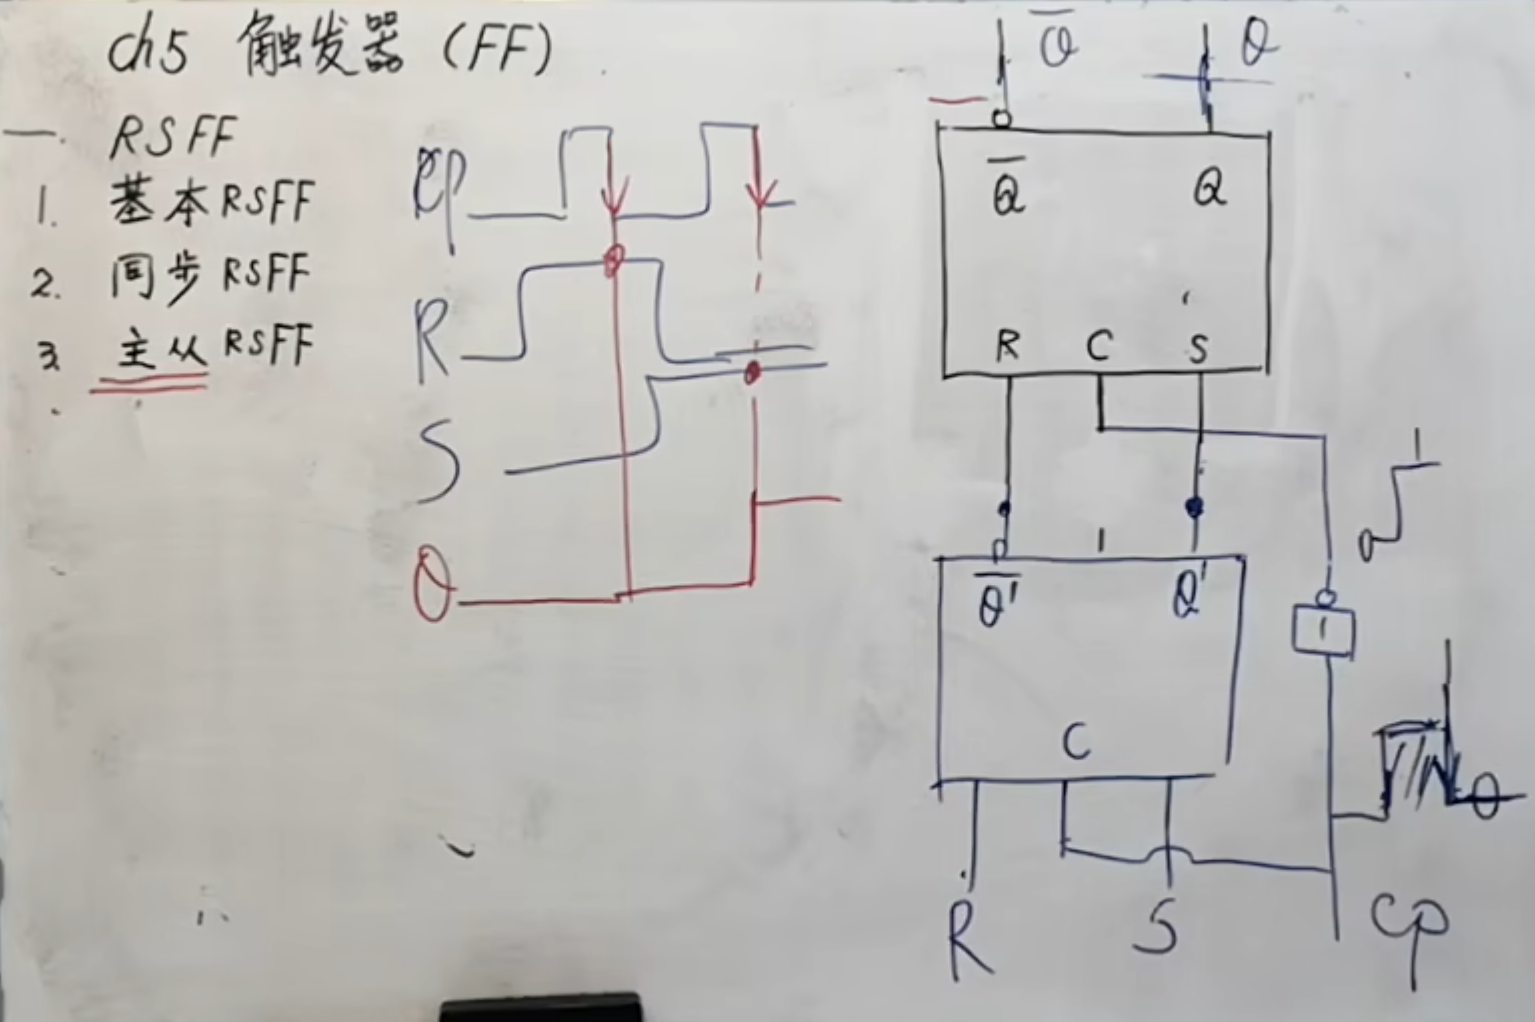 ch5 触发器 (FF)
一. RSFF
1. 基本RSFF
2. 同步RSFF
3. 主从RSFF
CP
R
S
Q
Q̅ Q
Q̅ Q
R C S
1
0
1
Q̅' Q'
1
C
0
R S CP